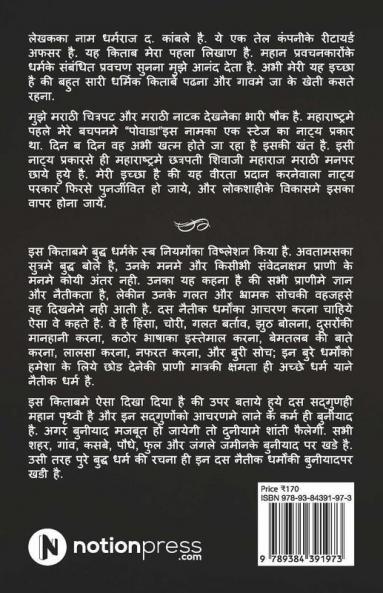 लेखकका नाम धर्मराज द. कांबले है. ये एक तेल कंपनीके रीटायर्ड
अफसर है. यह किताब मेरा पहला लिखाण है. महान प्रवचनकारोंके
धर्मके संबंधित प्रवचण सुनना मुझे आनंद देता है. अभी मेरी यह इच्छा
है की बहुत सारी धर्मिक किताबे पढना और गावमे जा के खेती कसते
रहना.
मुझे मराठी चित्रपट और मराठी नाटक देखनेका भारी षौक है. महाराष्ट्रमे
पहले मेरे बचपनमे "पोवाडा"इस नामका एक स्टेज का नाट्य प्रकार
था. दिन ब दिन वह अभी खत्म होते जा रहा है इसकी खंत है. इसी
नाट्य प्रकारसे ही महाराष्ट्रमे छत्रपती शिवाजी महाराज मराठी मनपर
छाये हुये है. मेरी इच्छा है की यह वीरता प्रदान करनेवाला नाट्य
परकार फिरसे पुनर्जीवित हो जाये, और लोकशाहीके विकासमे इसका
वापर होना जाये.
इस किताबमे बुद्ध धर्मके स्ब नियमोंका विष्लेशन किया है. अवतामसका
सुत्रमे बुद्ध बोले है, उनके मनमे और किसीभी संवेदनक्षम प्राणी के
मनमे कोयी अंतर नही. उनका यह कहना है की सभी प्राणीमे ज्ञान
और नैतीकता है, लेकीन उनके गलत और भ्रामक सोचकी वहजहसे
वह दिखनेमे नही आती है. दस नैतीक धर्मोका आचरण करना चाहिये
ऐसा वे कहते है. वे है हिंसा, चोरी, गलत बर्ताव, झुठ बोलना, दुसरोंकी
मानहानी करना, कठोर भाषाका इस्तेमाल करना, बेमतलब की बाते
करना, लालसा करना, नफरत करना, और बुरी सोच; इन बुरे धर्मोको
हमेशा के लिये छोड देनेकी प्राणी मात्रकी क्षमता ही अच्छे धर्म याने
नैतीक धर्म है.
इस किताबमे ऐसा दिखा दिया है की उपर बताये हुये दस सदगुणही
महान पृथ्वी है और इन सद्गुणोंको आचारणमे लाने के कर्म ही बुनीयाद
है. अगर बुनीयाद मजबूत हो जायेगी तो दुनीयामे शांती फैलेगी. सभी
शहर, गांव, कसबे, पौधे, फुल और जंगले जमीनके बुनीयाद पर खडे है.
उसी तरह पुरे बुद्ध धर्म की रचना ही इन दस नैतीक धर्मोंकी बुनीयादपर
खडी है.
Price ₹170
ISBN 978-93-84391-97-3
9 789384 391973
N notionpress
.com